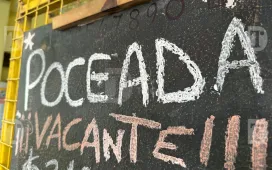 POCEADA
¡¡¡VACANTE!!!